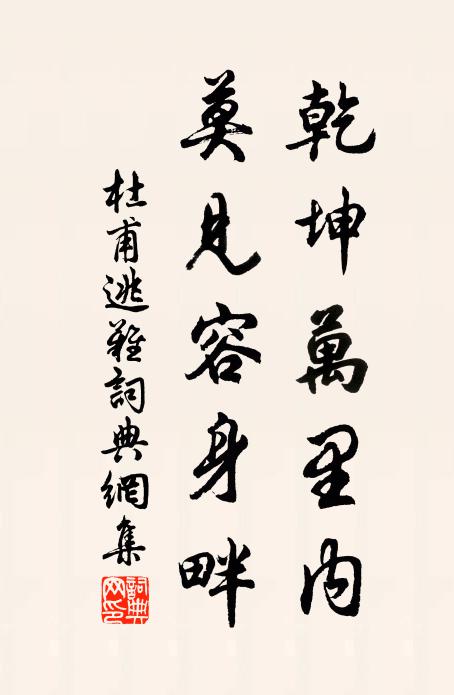 乾坤萬里內
莫見容身畔
杜甫逃難詞典網集
詞典網印